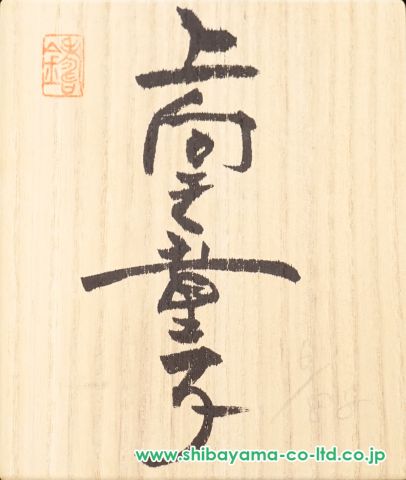 上向き童子
www.shibayama-co-ltd.co.jp